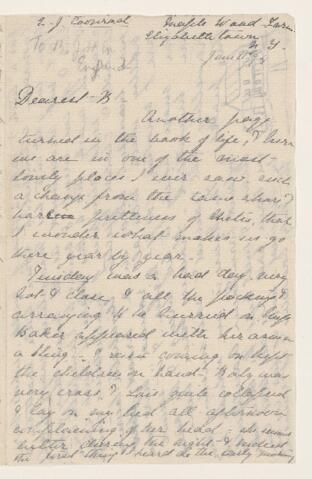 Maple Wood Farm
Elizabethtown
N. Y.
To B. Jot in
England
Dearest B—
Another page
turned in the book of life, & here
we are in one of the most
lovely places I ever saw, such
a change from the
prettiness of that
I wonder what makes us go
there year by year.
Tuesday was a bad day, very
hot & close, & all the packing &
arranging to be hurried on
Baker appeared with his arm in
a sling — & nurse coming on left
the children on hand. Baby was
very cross, & Lois quite collapsed
& lay on my bed all afternoon
complaining of her head — she seemed
better during the night &
the first thing I heard in the early morning